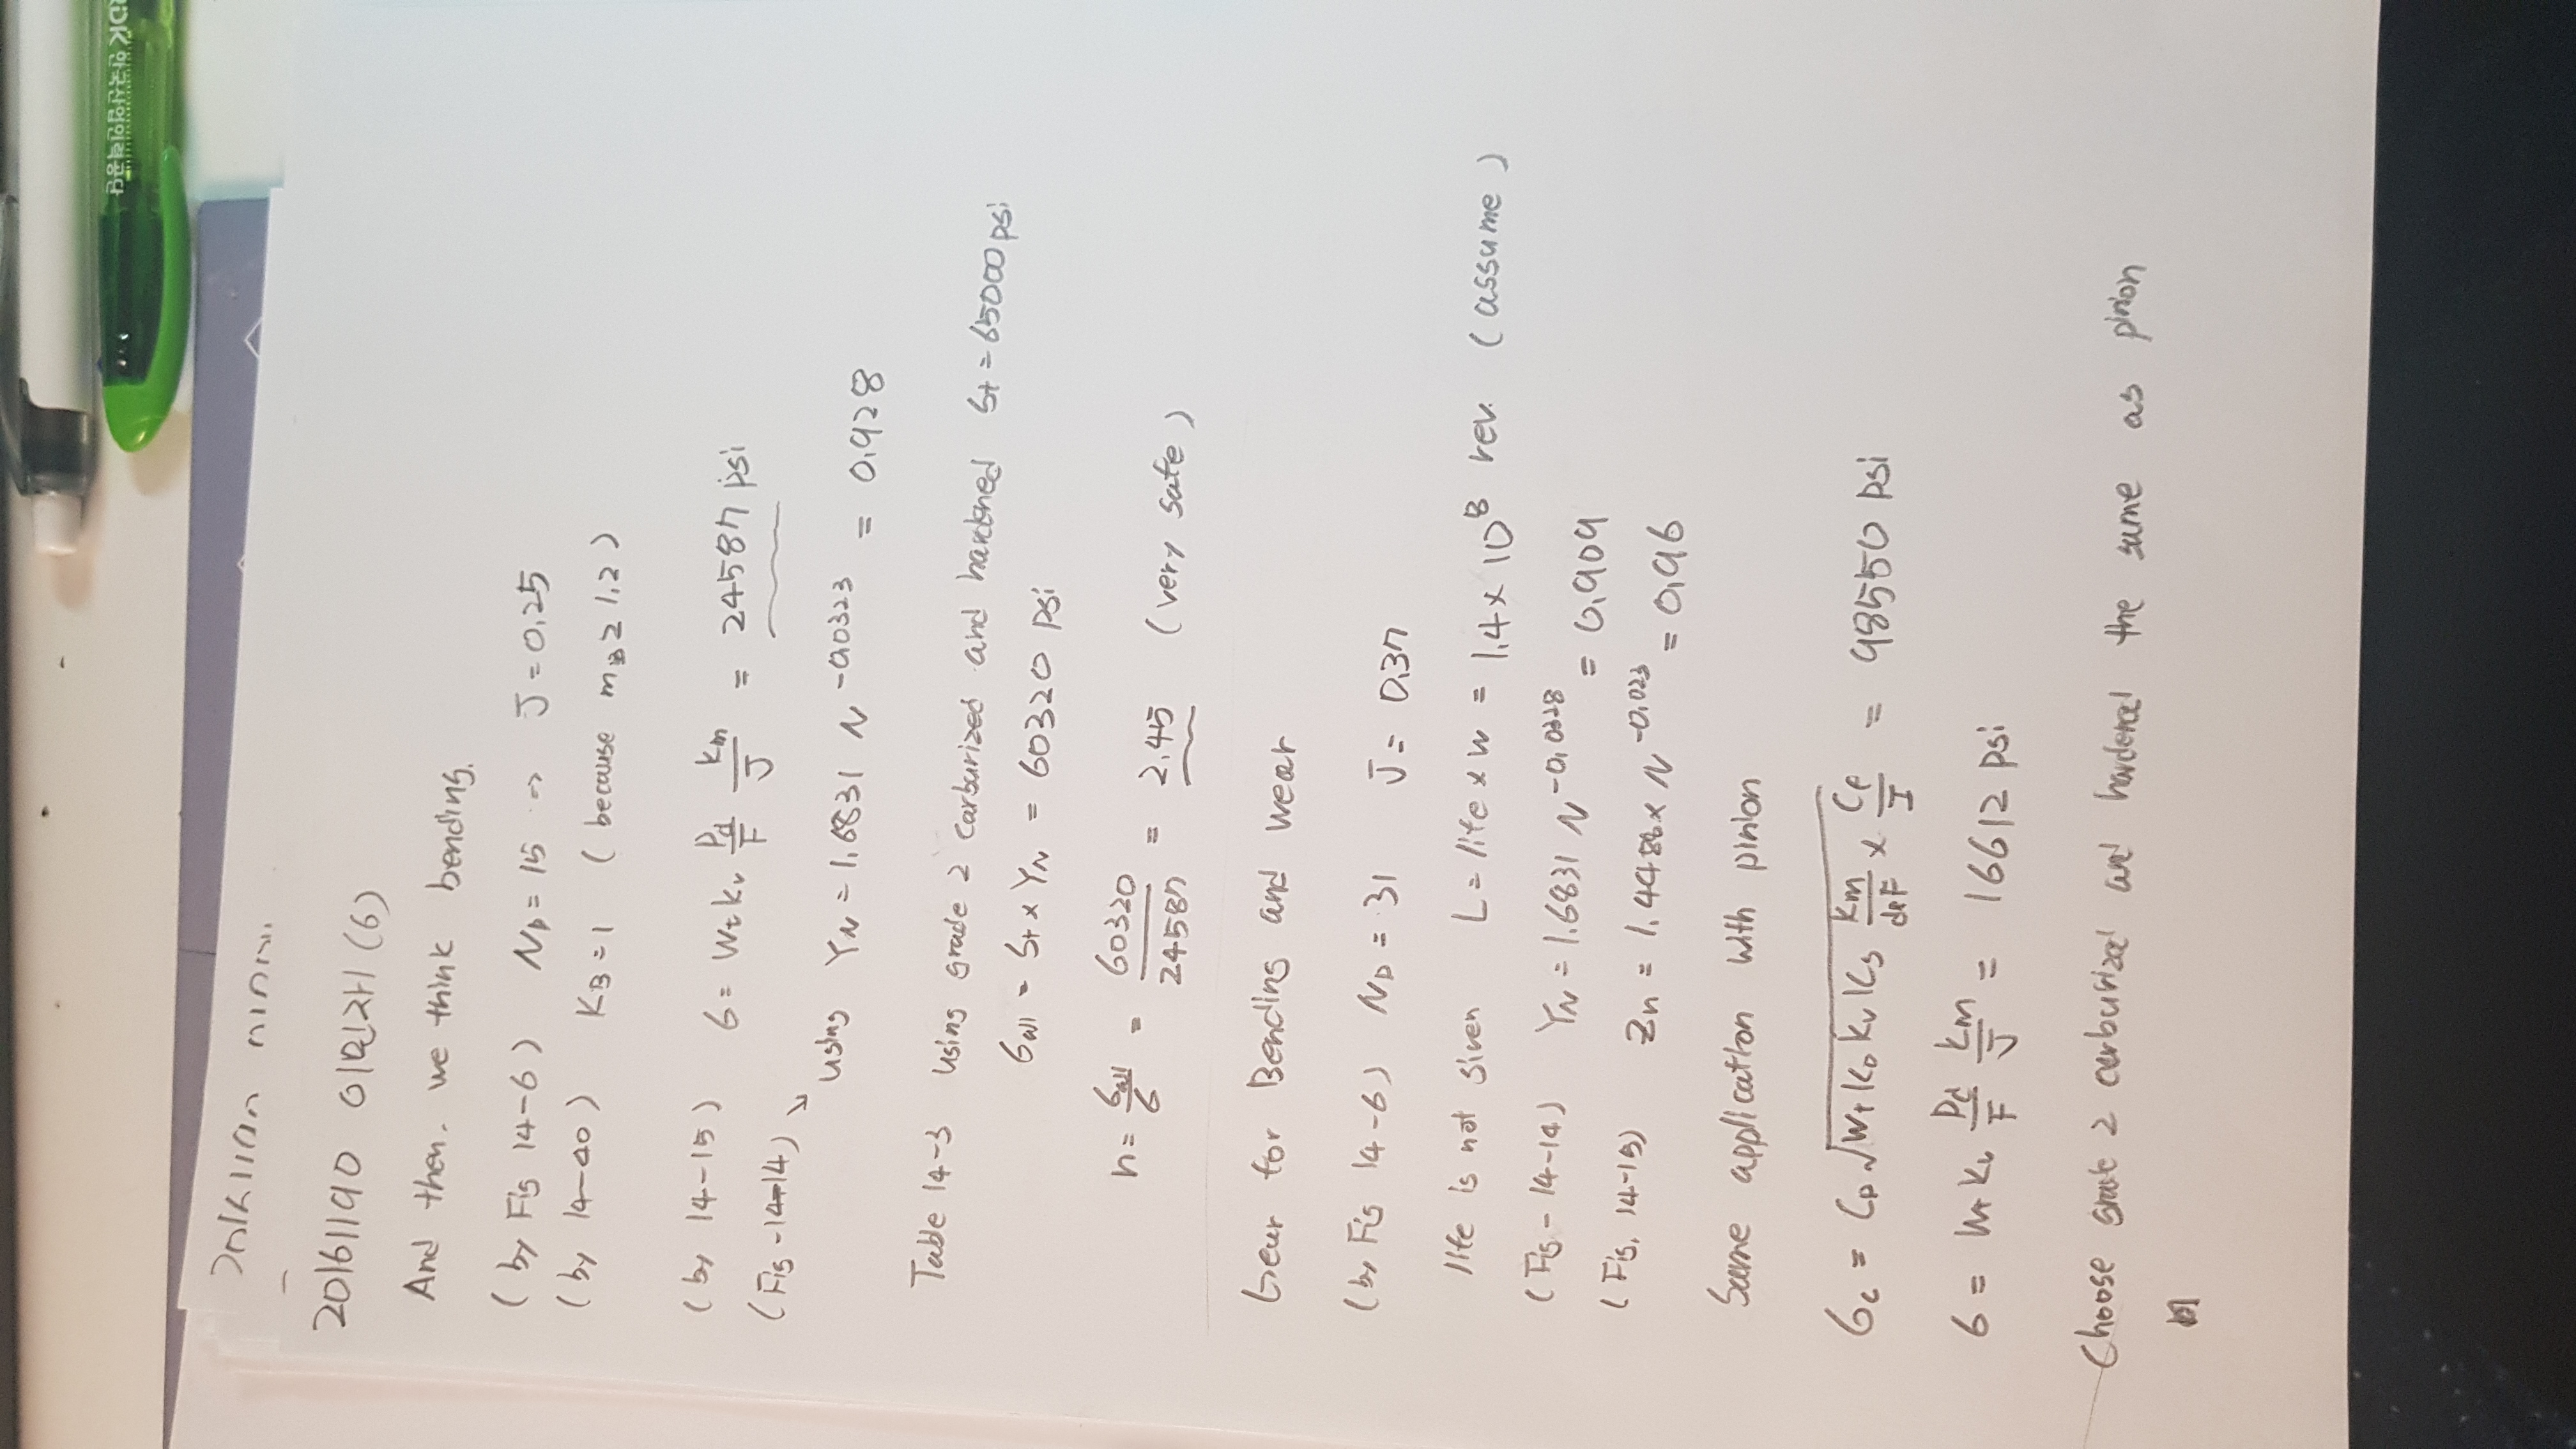 20161190 이민재 (6)
And then. we think bending.
(by Fig 14-6) Np = 15 → J = 0.25
(by 14-40) KB = 1 (because mB ≥ 1.2)
(by 14-15) 6 = Wt kv Pd/F km/J = 24587 psi
(Fig -14-14) ↘
using YN = 1.6831 N^-0.0323 = 0.928
Table 14-3 using grade 2 carburized and hardened St = 65000 psi
6all = St x YN = 60320 psi
n = 6all/6 = 60320/24587 = 2.45 (very safe)
Gear for Bending and wear
(by Fig 14-6) ND = 31 J = 0.37
life is not given L = life x w = 1.4 x 10^8 rev. (assume)
(Fig - 14-14) YN = 1.6831 N^-0.0328 = 0.909
(Fig. 14-15) Zn = 1.4488 x N^-0.023 = 0.96
Same application with pinion
6c = Cp √(Wt Ko Kv Ks km/dpF x Cf/I) = 98550 psi
6 = Wt kv Pd/F km/J = 16612 psi
Choose grade 2 carburized and hardened the same as pinion